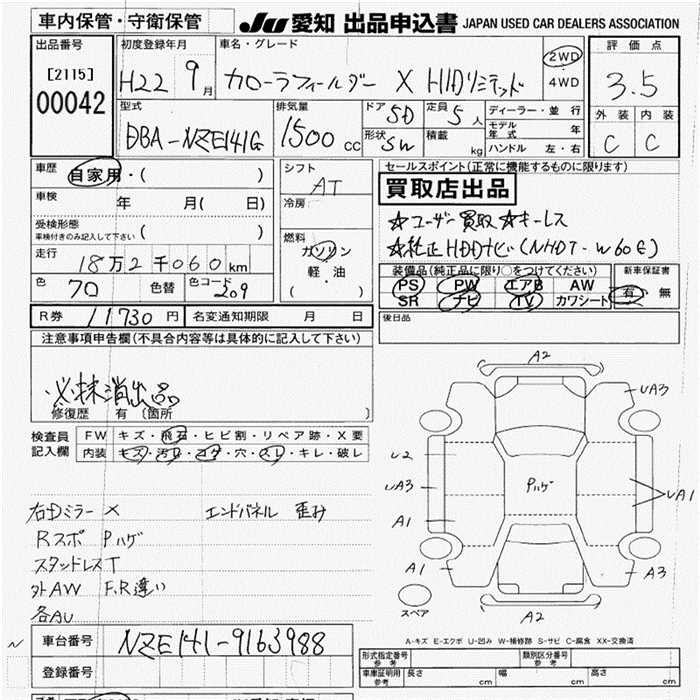 車内保管・守衛保管
JU 愛知 出品申込書 JAPAN USED CAR DEALERS ASSOCIATION
出品番号
[2115]
00042
初度登録年月
H22 9月
車名・グレード
カローラフィールダー X HIDリミテッド
2WD
4WD
評価点
3.5
外装 内装
C C
型式
DBA-NZE141G
排気量
1500 cc
ドア 5D
定員 5人
形状 SW
積載 kg
ディーラー・並行
モデル年式 年
ハンドル 左・右
車歴
自家用・( )
車検
年 月( 日)
受検形態
車検付きのみ記入して下さい ( )
走行
18万2千060km
色 70 色替 色コード 209
シフト
AT
冷房
燃料
ガソリン
軽・油
( )
セールスポイント(正常に機能するものに限ります)
買取店出品
☆ユーザー買取 ☆キーレス
☆純正HDDナビ(NHDT-W60G)
装備品(純正品に限り○をつけてください)
PS PW エアB AW
SR ナビ TV カワシート
新車保証書
有 無
後日品
R券 11730円 名変通知期限 月 日
注意事項申告欄(不具合内容等は具体的に記入して下さい)
必抹消出品
修復歴 有 〔箇所 〕
検査員記入欄
FW キズ・飛石・ヒビ割・リペア跡・X要
内装 キズ・汚レ・コゲ・穴・スレ・キレ・破レ
右Dミラー X エンドパネル 歪み
Rスポ Pハゲ
スタッドレスT
外AW F,R違い
各AU
A2
UA3
U2
UA3
Pハゲ
UA1
A1
A1
A3
スペア
A2
A-キズ E-エクボ U-凹み W-補修跡 S-サビ C-腐食 XX-交換済
車台番号 NZE141-9163988
登録番号
形式指定番号 参考
類別区分番号 参考
車庫証明用 参考 長さ cm 幅 cm 高さ cm